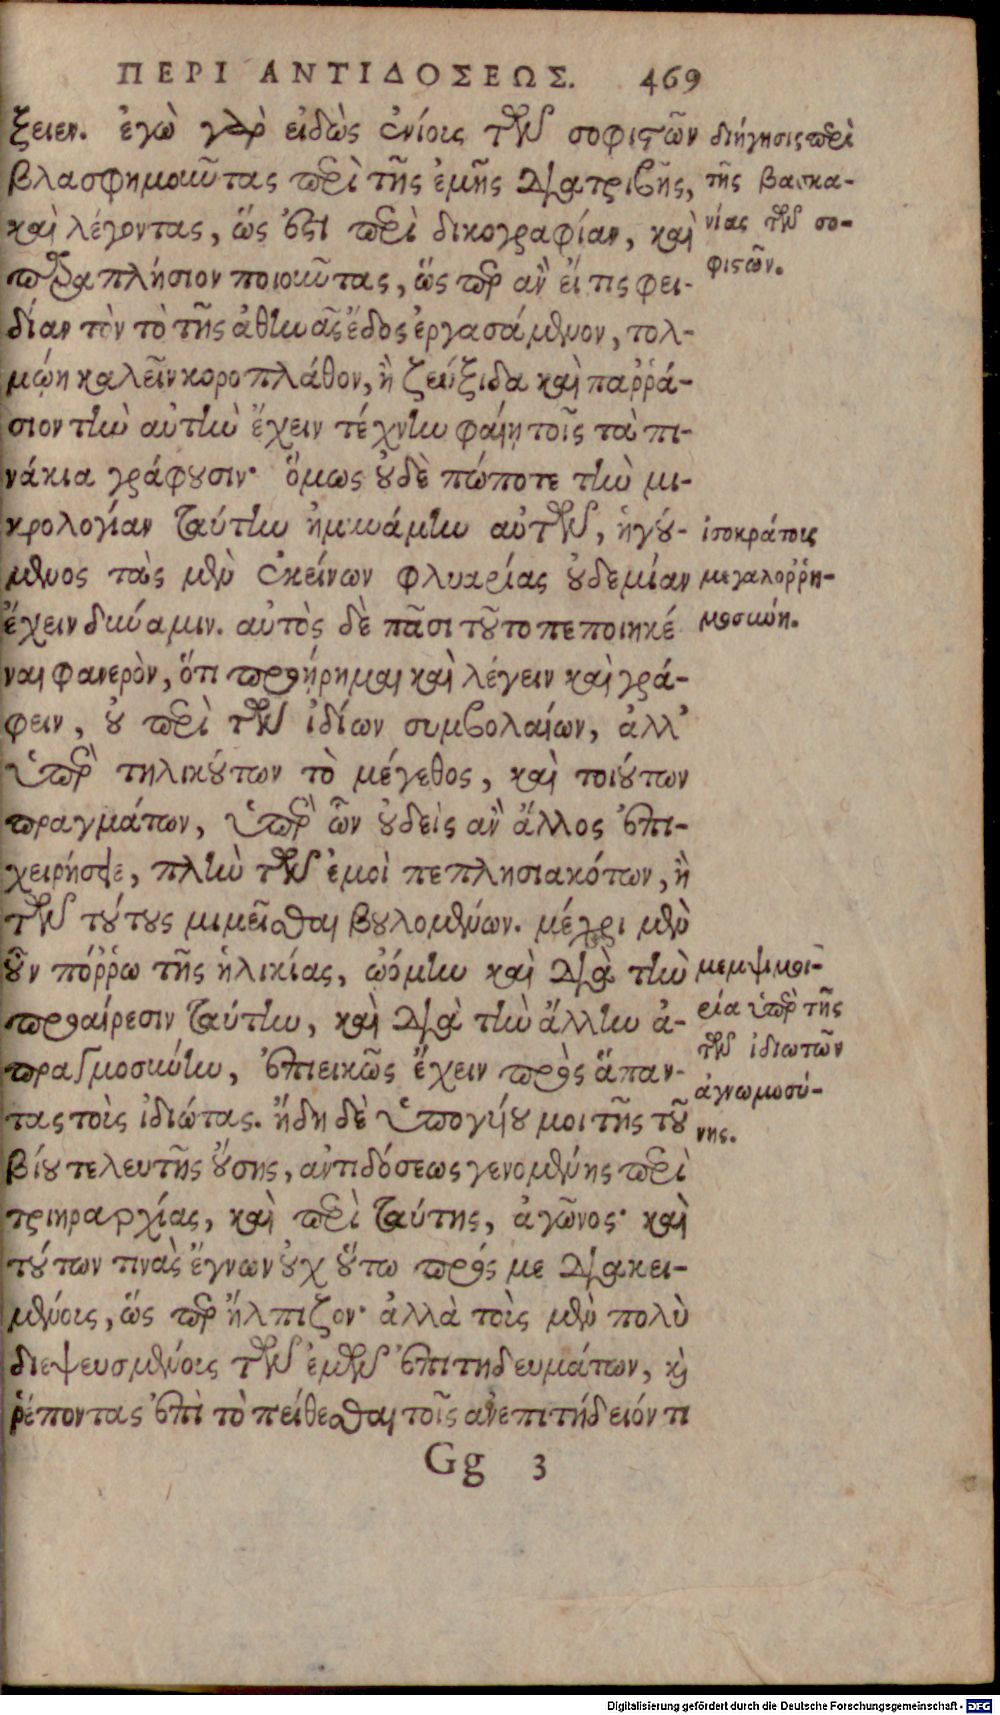 ΠΕΡΙ ΑΝΤΙΔΟΣΕΩΣ. 469
ξειεν. ἐγὼ γὰρ εἰδὼς ἐνίους τῶν σοφιστῶν
βλασφημοῦντας περὶ τῆς ἐμῆς διατριβῆς,
καὶ λέγοντας, ὥς ἐστι περὶ δικογραφίαν, καὶ
παραπλήσιον ποιοῦντας, ὥσπερ ἂν εἴ τις φει-
δίαν τὸν τὸ τῆς ἀθηνᾶς ἕδος ἐργασάμενον, τολ-
μῴη καλεῖν κοροπλάθον, ἢ ζεύξιδα καὶ παῤῥά-
σιον τὴν αὐτὴν ἔχειν τέχνην φαίη τοῖς τὰ πι-
νάκια γράφουσιν· ὅμως οὐδὲ πώποτε τὴν μι-
κρολογίαν ταύτην ἠμυνάμην αὐτῶν, ἡγού-
μενος τὰς μὲν ἐκείνων φλυαρίας οὐδεμίαν
ἔχειν δύναμιν. αὐτὸς δὲ πᾶσι τοῦτο πεποιηκέ
ναι φανερὸν, ὅτι προῄρημαι καὶ λέγειν καὶ γρά-
φειν, οὐ περὶ τῶν ἰδίων συμβολαίων, ἀλλ᾽
ὑπὲρ τηλικούτων τὸ μέγεθος, καὶ τοιούτων
πραγμάτων, ὑπὲρ ὧν οὐδεὶς ἂν ἄλλος ἐπι-
χειρήσειε, πλὴν τῶν ἐμοὶ πεπλησιακότων, ἢ
τῶν τούτους μιμεῖσθαι βουλομένων. μέχρι μὲν
οὖν πόῤῥω τῆς ἡλικίας, ᾠόμην καὶ διὰ τὴν
προαίρεσιν ταύτην, καὶ διὰ τὴν ἄλλην ἀ-
πραγμοσύνην, ἐπιεικῶς ἔχειν πρὸς ἅπαν-
τας τοὺς ἰδιώτας. ἤδη δὲ ὑπογύου μοι τῆς τοῦ
βίου τελευτῆς οὔσης, ἀντιδόσεως γενομένης περὶ
τριηραρχίας, καὶ περὶ ταύτης, ἀγῶνος· καὶ
τούτων τινὰς ἔγνων οὐχ οὕτω πρός με διακει-
μένους, ὥσπερ ἤλπιζον· ἀλλὰ τοὺς μὲν πολὺ
διεψευσμένους τῶν ἐμῶν ἐπιτηδευμάτων, καὶ
ῥέποντας ἐπὶ τὸ πείθεσθαι τοῖς ἀνεπιτήδειόν τι
Gg 3
διήγησις περὶ
τῆς βασκα-
νίας τῶν σο-
φιστῶν.
ἰσοκράτους
μεγαλοῤῥη-
μοσύνη.
μεμψιμοι-
ρία ὑπὲρ τῆς
τῶν ἰδιωτῶν
ἀγνωμοσύ-
νης.
Digitalisierung gefördert durch die Deutsche Forschungsgemeinschaft - DFG